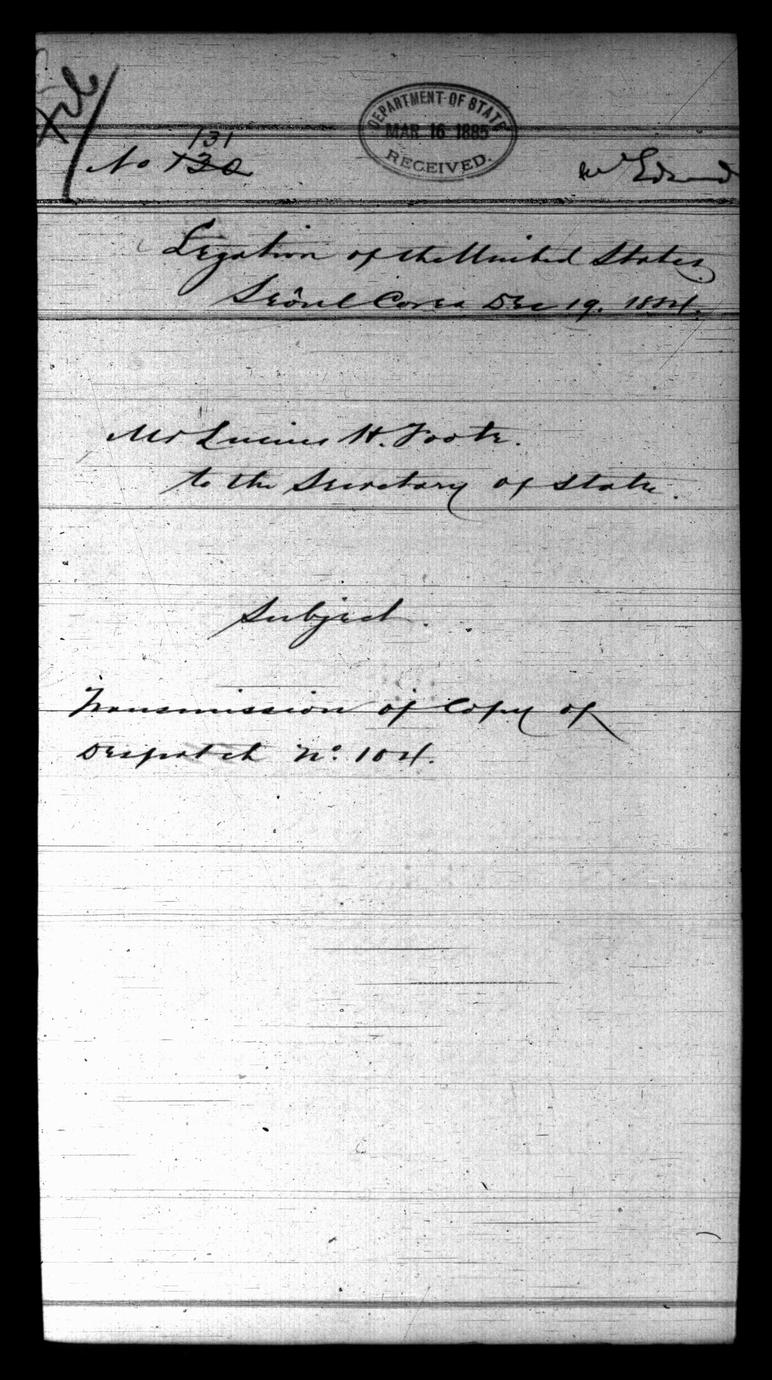 File
DEPARTMENT OF STATE
MAR 16 1885
RECEIVED.
131
No 130
Legation of the United States
Sèoul Corea Dec 19. 1884.
Mr Lucius H. Foote.
to the Secretary of State.
Subject.
Transmission of Copy of
Despatch No. 104.